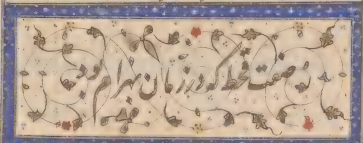 صفت قحط که در زمان بهرام بود